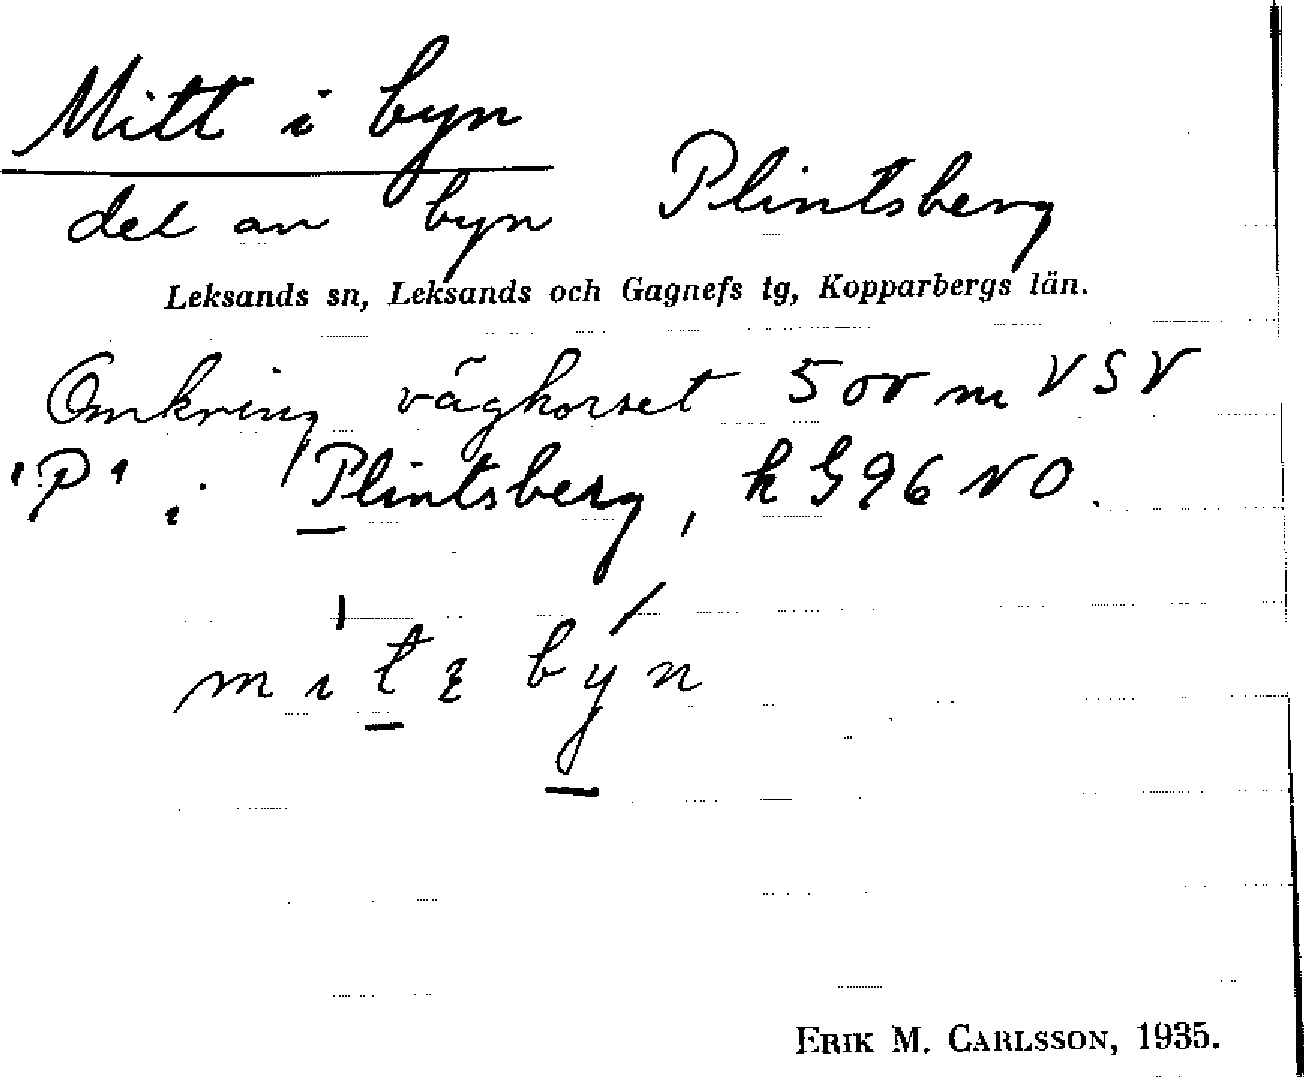 Mitt i byn
del av byn Plintsberg
Leksands sn, Leksands och Gagnefs tg, Kopparbergs län.
Omkring vägkorset 500 m VSV
"P" i Plintsberg, k G96 NO.
mitę byn
ERIK M. CARLSSON, 1935.